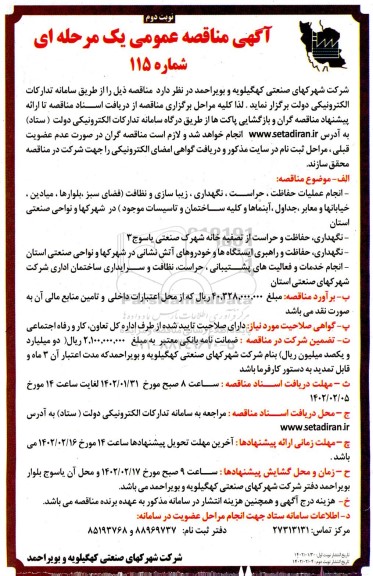 نوبت دوم
آگهی مناقصه عمومی یک مرحله ای
شماره ۱۱۵
شرکت شهرکهای صنعتی کهگیلویه و بویراحمد در نظر دارد مناقصه ذیل را از طریق سامانه تدارکات
الکترونیکی دولت برگزار نماید . لذا کلیه مراحل برگزاری مناقصه از دریافت اسناد مناقصه تا ارائه
پیشنهاد مناقصه گران و بازگشایی پاکت ها از طریق درگاه سامانه تدارکات الکترونیکی دولت ( ستاد)
به آدرس www.setadiran.ir انجام خواهد شد و لازم است مناقصه گران در صورت عدم عضویت
قبلی ، مراحل ثبت نام در سایت مذکور و دریافت گواهی امضای الکترونیکی را جهت شرکت در مناقصه
محقق سازند.
الف- موضوع مناقصه:
- انجام عملیات حفاظت ، حراست ، نگهداری ، زیبا سازی و نظافت (فضای سبز ،بلوارها ، میادین ،
خیابانها و معابر ،جداول ،آبنماها و کلیه ساختمان و تاسیسات موجود ) در شهرکها و نواحی صنعتی
استان
- نگهداری، حفاظت و حراست از تصفیه خانه شهرک صنعتی یاسوج۲
- نگهداری، حفاظت و راهبری ایستگاه ها و خودروهای آتش نشانی در شهرکها و نواحی صنعتی استان
- انجام خدمات و فعالیت های پشتیبانی ، حراست، نظافت و سرایداری ساختمان اداری شرکت
شهرکهای صنعتی استان
ب- برآورد مناقصه: مبلغ ۴۰،۳۲۸،۰۰۰،۰۰۰ ریال که از محل اعتبارات داخلی و تامین منابع مالی آن به
صورت نقد می باشد
پ- گواهی صلاحیت مورد نیاز: دارای صلاحیت تایید شده از طرف اداره کل تعاون، کار و رفاه اجتماعی
ت- تضمین شرکت در مناقصه : ضمانت نامه بانکی معتبر به مبلغ ۲،۱۰۰،۰۰۰،۰۰۰ ریال( دو میلیارد
و یکصد میلیون ریال) بنام شرکت شهر کهای صنعتی کهگیلویه و بویراحمدکه مدت اعتبار آن ۳ ماه و
قابل تمدید به دستور کارفرما باشد
ث – مهلت دریافت اسناد مناقصه : ساعت ۸ صبح مورخ ۱۴۰۲/۰۱/۳۱ لغایت ساعت ۱۴ مورخ
۱۴۰۲/۰۲/۰۵
ج – محل دریافت اسناد مناقصه : مراجعه به سامانه تدارکات الکترونیکی دولت ( ستاد) به آدرس
www.setadiran.ir
چ- مهلت زمانی ارائه پیشنهادها : آخرین مهلت تحویل پیشنهادها ساعت ۱۴ مورخ ۱۴۰۲/۰۲/۱۶ می
باشد.
ح – زمان و محل گشایش پیشنهادها : ساعت ۹ صبح مورخ ۱۴۰۲/۰۲/۱۷ و محل آن یاسوج بلوار
بویراحمد دفتر شرکت شهرکهای صنعتی کهگیلویه و بویراحمد می باشد.
خ- هزینه درج آگهی و همچنین هزینه انتشار در سامانه مذکور به عهده برنده مناقصه می باشد.
د- اطلاعات سامانه ستاد جهت انجام مراحل عضویت در سامانه:
مرکز تماس: ۲۷۳۱۳۱۳۱ دفتر ثبت نام: ۸۸۹۶۹۷۳۷ و ۸۵۱۹۳۷۶۸
شرکت شهرکهای صنعتی کهگیلویه و بویراحمد